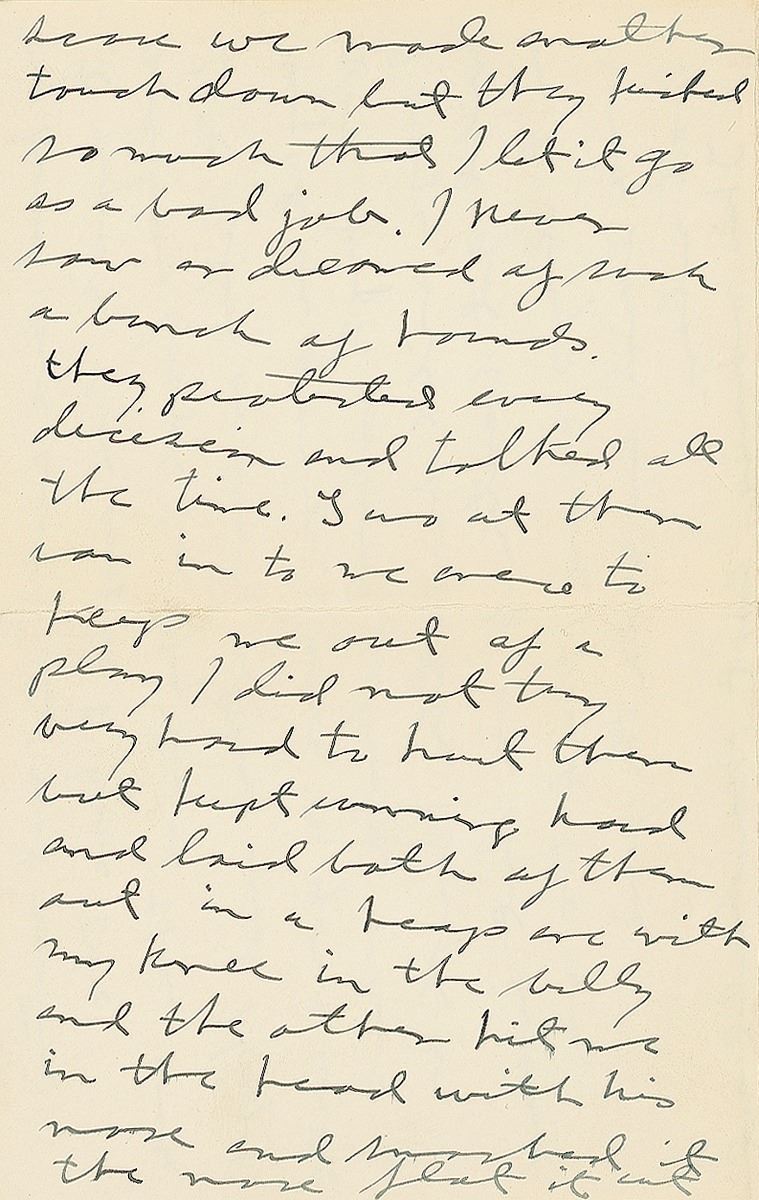 score we made another
touch down but they kicked
so much that I let it go
as a bad job. I never
saw or dreamed of such
a bunch of hounds.
they protested every
decision and talked all
the time. Two of them
ran in to me once to
keep me out of a
play I did not try
very hard to hurt them
but kept running hard
and laid both of them
out in a heap one with
my knee in the belly
and the other hit me
in the head with his
nose and smashed it
the nose flat it cut